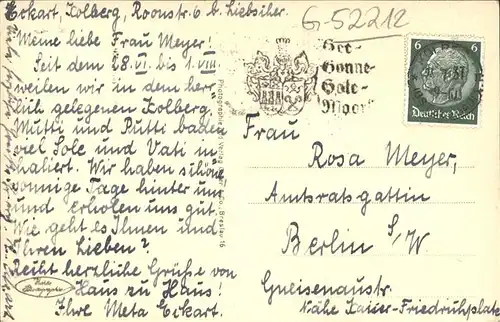 Eckart, Kolberg, Roonstr. 6 b. Liebsiher.
Meine liebe Frau Meyer!
Seit dem 28.VI. bis 1.VIII.
weilen wir in dem herr-
lich gelegenen Kolberg.
Mutti und Putti baden
viel Sole und Vati in-
haliert. Wir haben schöne
sonnige Tage hinter uns
und erholen uns gut.
Wie geht es Ihnen und
Ihren Lieben?
Recht herzliche Grüße von
Haus zu Haus!
Ihre Meta Eckart.
G-52212
See-
Sonne-
Sole-
Moor
6
6
Deutsches Reich
Frau
Rosa Meyer,
Amtsratsgattin
Berlin S/W
Gneisenaustr.
Nähe Kaiser-Friedrichplatz